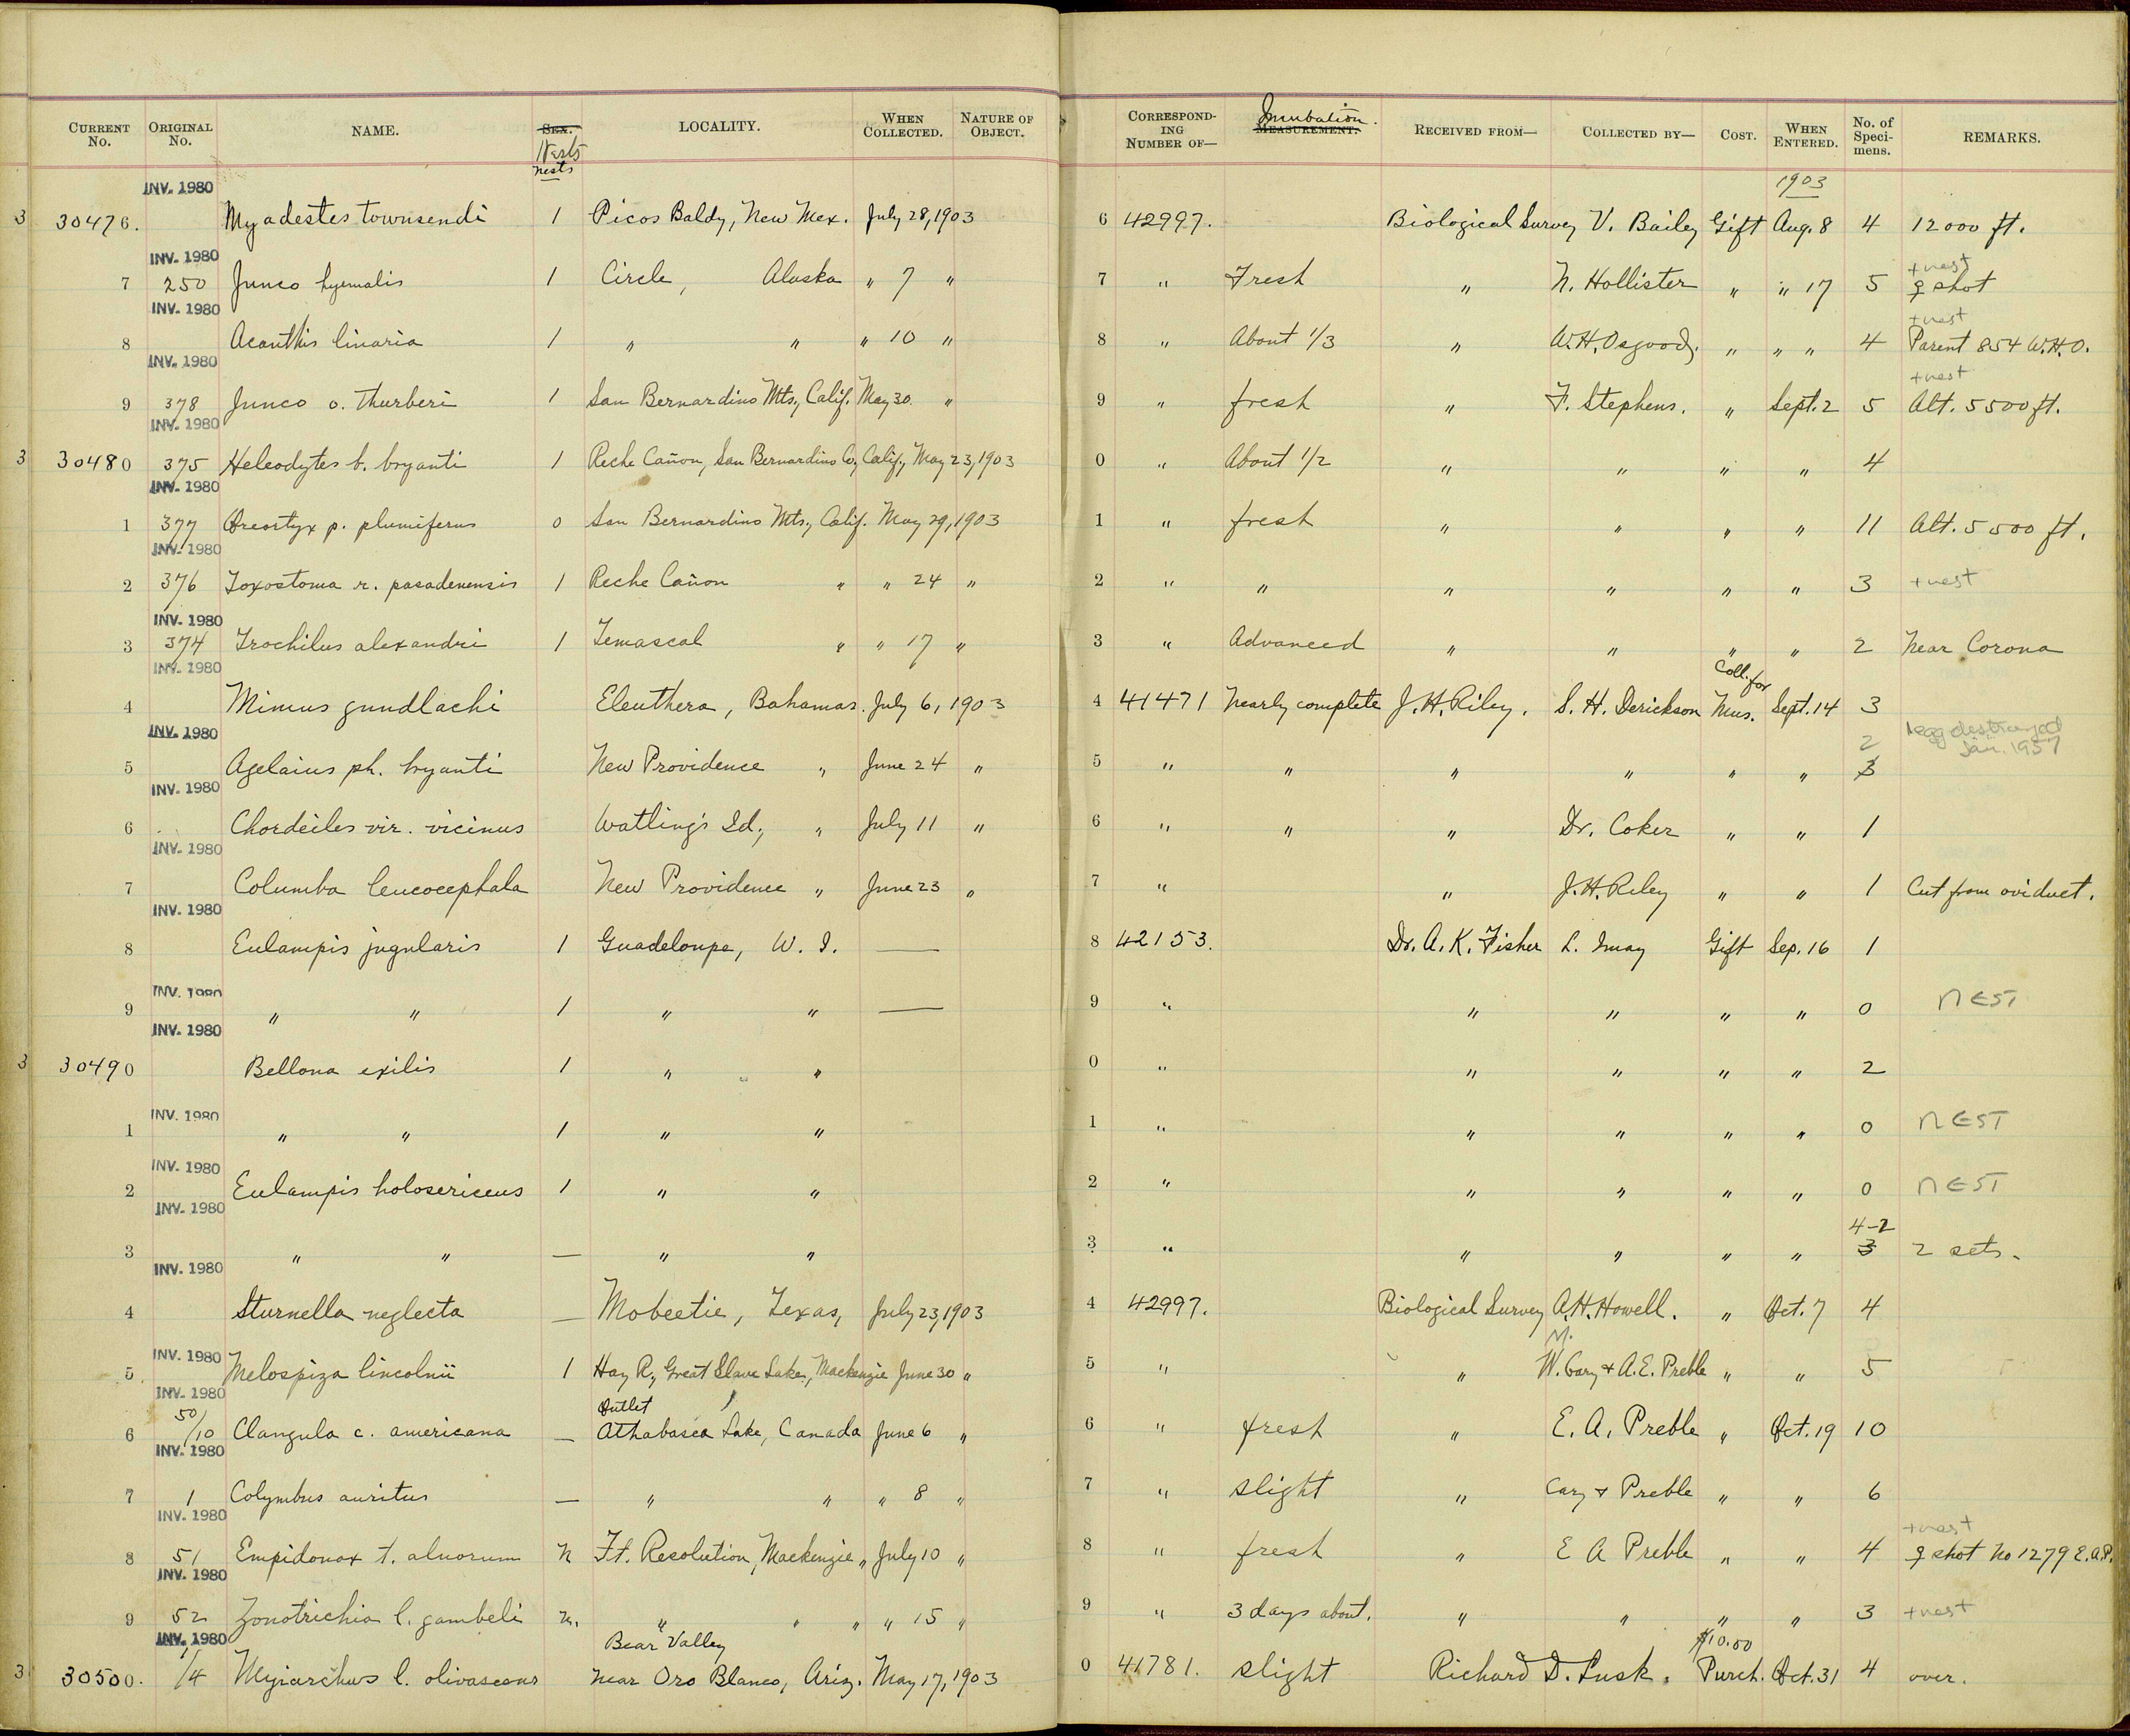 CURRENT No. ORIGINAL No. NAME. SEX. Nests nests LOCALITY. WHEN COLLECTED. NATURE OF OBJECT. CORRESPONDING NUMBER OF— Incubation. MEASUREMENT. RECEIVED FROM— COLLECTED BY— COST. WHEN ENTERED. No. of Specimens. REMARKS.
INV. 1980 1903
3 30476. Myadestes townsendi 1 Picos Baldy, New Mex. July 28, 1903 6 42997. Biological Survey V. Bailey Gift Aug. 8 4 12000 ft.
INV. 1980 + nest
7 250 Junco hyemalis 1 Circle, Alaska " 7 " 7 " Fresh " N. Hollister " " 17 5 ♀ shot
INV. 1980 + nest
8 Acanthis linaria 1 " " " 10 " 8 " About 1/3 " W.H. Osgood, " " " 4 Parent 854 W.H.O.
INV. 1980 + nest
9 378 Junco o. thurberi 1 San Bernardino Mts., Calif. May 30. " 9 " fresh " F. Stephens. " Sept. 2 5 Alt. 5500 ft.
INV. 1980
3 30480 375 Heleodytes b. bryanti 1 Reche Cañon, San Bernardino Co., Calif., May 23, 1903 0 " About 1/2 " " " " 4
INV. 1980
1 377 Oreortyx p. plumiferus 0 San Bernardino Mts., Calif. May 29, 1903 1 " fresh " " " " 11 Alt. 5500 ft.
INV. 1980
2 376 Toxostoma r. pasadenensis 1 Reche Cañon " " 24 " 2 " " " " " " 3 + nest
INV. 1980
3 374 Trochilus alexandri 1 Temascal " " 17 " 3 " Advanced " " " " 2 Near Corona
INV. 1980 Coll. for
4 Mimus gundlachi Eleuthera, Bahamas. July 6, 1903 4 41471 Nearly complete J.H. Riley. S. H. Derickson Mus. Sept. 14 3
INV. 1980 2 1 egg destroyed Jan. 1957
5 Agelaius ph. bryanti New Providence " June 24 " 5 " " " " " " 3
INV. 1980
6 Chordeiles vir. vicinus Watling's Id., " July 11 " 6 " " " Dr. Coker " " 1
INV. 1980
7 Columba leucocephala New Providence " June 23 " 7 " " J.H. Riley " " 1 Cut from oviduct.
INV. 1980
8 Eulampis jugularis 1 Guadeloupe, W. I. — 8 42153. Dr. A. K. Fisher L. Imay Gift Sep. 16 1
INV. 1980
9 " " 1 " " — 9 " " " " " 0 NEST
INV. 1980
3 30490 Bellona exilis 1 " " 0 " " " " " 2
INV. 1980
1 " " 1 " " 1 " " " " " 0 NEST
INV. 1980
2 Eulampis holosericeus 1 " " 2 " " " " " 0 NEST
INV. 1980 4-2
3 " " — " " 3 " " " " " 3 2 sets.
INV. 1980
4 Sturnella neglecta — Mobeetie, Texas, July 23, 1903 4 42997. Biological Survey A.H. Howell. " Oct. 7 4
INV. 1980 M.
5 Melospiza lincolnii 1 Hay R., Great Slave Lake, Mackenzie June 30 " 5 " " W. Cary & A.E. Preble " " 5
INV. 1980 Outlet
6 50/10 Clangula c. americana — Athabasca Lake, Canada June 6 " 6 " fresh " E. A. Preble " Oct. 19 10
INV. 1980
7 1 Colymbus auritus — " " " 8 " 7 " slight " Cary & Preble " " 6
INV. 1980 + nest
8 51 Empidonax t. alnorum N Ft. Resolution, Mackenzie " July 10 " 8 " fresh " E A Preble " " 4 ♀ shot No 1279 E.A.P.
INV. 1980
9 52 Zonotrichia l. gambeli n. " " " " 15 " 9 " 3 days about. " " " " 3 + nest
INV. 1980 Bear Valley $10.00
3 30500. 1/4 Myiarchus l. olivascens near Oro Blanco, Ariz. May 17, 1903 0 41781. slight Richard D. Lusk. Purch. Oct. 31 4 over.